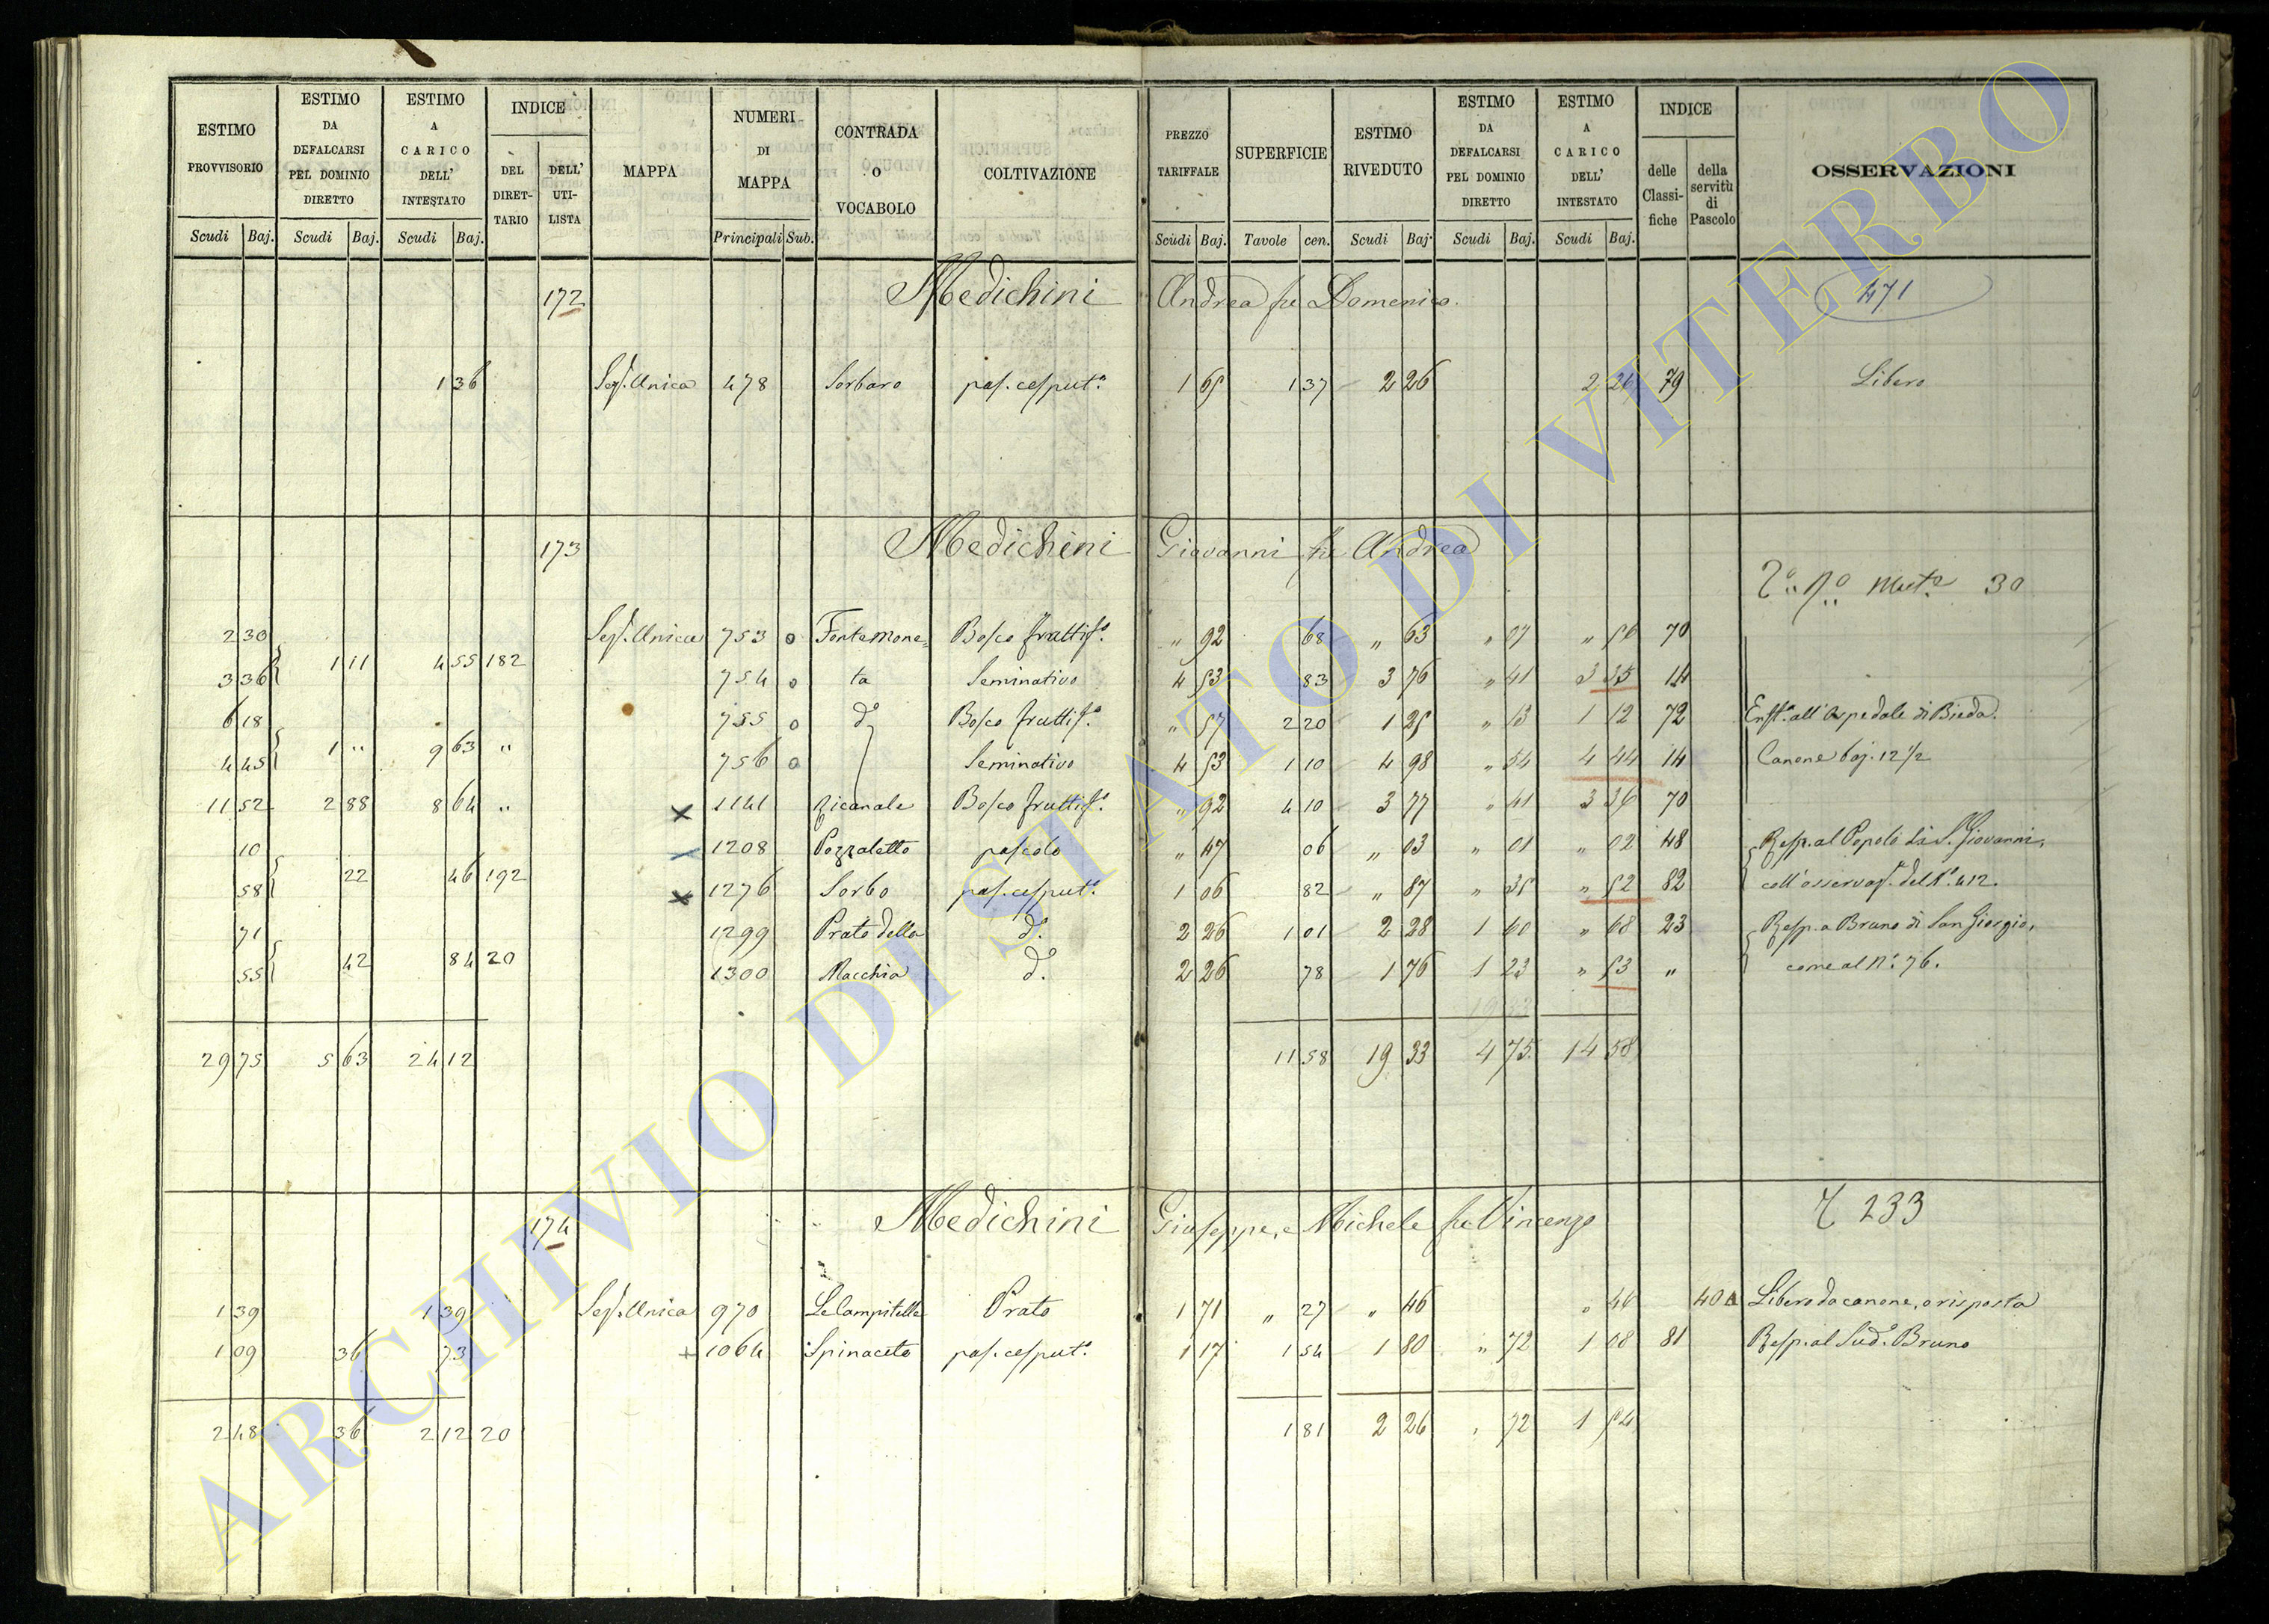 ESTIMO PROVVISORIO Scudi Baj.
ESTIMO DA DEFALCARSI PEL DOMINIO DIRETTO Scudi Baj.
ESTIMO A CARICO DELL' INTESTATO Scudi Baj.
INDICE DEL DIRET-TARIO DELL' UTI-LISTA
MAPPA
NUMERI DI MAPPA Principali Sub.
CONTRADA O VOCABOLO
COLTIVAZIONE
PREZZO TARIFFALE Scudi Baj.
SUPERFICIE Tavole cen.
ESTIMO RIVEDUTO Scudi Baj.
ESTIMO DA DEFALCARSI PEL DOMINIO DIRETTO Scudi Baj.
ESTIMO A CARICO DELL' INTESTATO Scudi Baj.
INDICE delle Classi-fiche della servitù di Pascolo
OSSERVAZIONI
172 Medichini Andrea fu Domenico. 471
1 36 Sez. Unica 478 Sorbaro pas. cesput.o 1 65 1 37 2 26 2 26 79 Libero
173 Medichini Giovanni fu Andrea
Mut.a 30
2 30 Sez. Unica 753 o Fontemone= Bosco fruttif.o " 92 68 " 63 " 07 " 56 70
1 11 4 55 182
3 36 754 o ta Seminativo 4 53 83 3 76 " 41 3 35 14
6 18 755 o d.o Bosco fruttif.o " 57 2 20 1 25 " 13 1 12 72 Enft.a all'Ospedale di Bieda.
1 " 9 63 "
4 45 756 o Seminativo 4 53 1 10 4 98 " 54 4 44 14 Canone baj. 12 1/2
11 52 2 88 8 64 " x 1141 Ricanale Bosco fruttif.o " 92 4 10 3 77 " 41 3 36 70
10 1208 Pozzaletto pascolo " 47 06 " 03 " 01 " 02 48 Resp. al Popolo di S. Giovanni,
22 46 192
58 x 1276 Sorbo pas. cesput.o 1 06 82 " 87 " 35 " 52 82 coll'osservaz. del N.o 412.
71 1299 Prato della d.o 2 26 1 01 2 28 1 60 " 68 23 Resp. a Bruno di San Giorgio,
42 84 20
55 1300 Macchia d.o 2 26 78 1 76 1 23 " 53 " come al N.o 76.
29 75 5 63 24 12 11 58 19 33 4 75 14 58
174 Medichini Giuseppe, e Michele fu Vincenzo 233
1 39 1 39 Sez. Unica 970 Le Campitelle Prato 1 71 " 27 " 46 " 46 40 A Libero da canone, o risposta
1 09 36 73 + 1064 Spinaceto pas. cesput.o 1 17 1 54 1 80 " 72 1 08 81 Resp. al Sud.o Bruno
2 48 36 2 12 20 1 81 2 26 " 72 1 54
ARCHIVIO DI STATO DI VITERBO